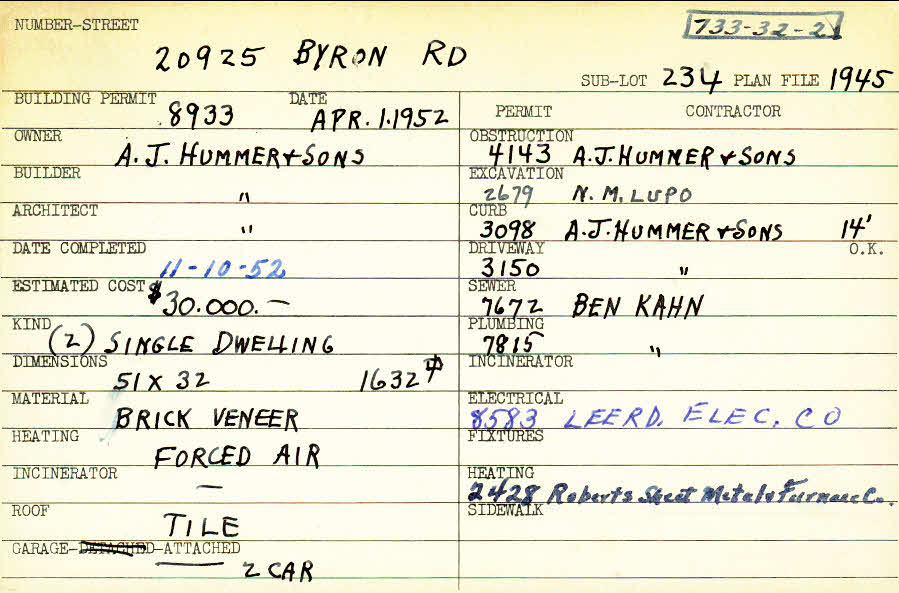 NUMBER-STREET
733-32-21
20925 BYRON RD
SUB-LOT 234 PLAN FILE 1945
BUILDING PERMIT 8933 DATE APR. 1. 1952
OWNER A. J. HUMMER & SONS
BUILDER "
ARCHITECT "
DATE COMPLETED 11-10-52
ESTIMATED COST $30.000.—
KIND (2) SINGLE DWELLING
DIMENSIONS 51 X 32 1632
MATERIAL BRICK VENEER
HEATING FORCED AIR
INCINERATOR —
ROOF TILE
GARAGE-DETACHED-ATTACHED
2 CAR
PERMIT CONTRACTOR
OBSTRUCTION 4143 A.J. HUMMER & SONS
EXCAVATION 2679 N. M. LUPO
CURB 3098 A.J. HUMMER & SONS 14'
DRIVEWAY 3150 " O.K.
SEWER 7672 BEN KAHN
PLUMBING 7815 "
INCINERATOR
ELECTRICAL 8583 LEERD. ELEC. CO
FIXTURES
HEATING 2428 Roberts Sheet Metal & Furnace Co.
SIDEWALK